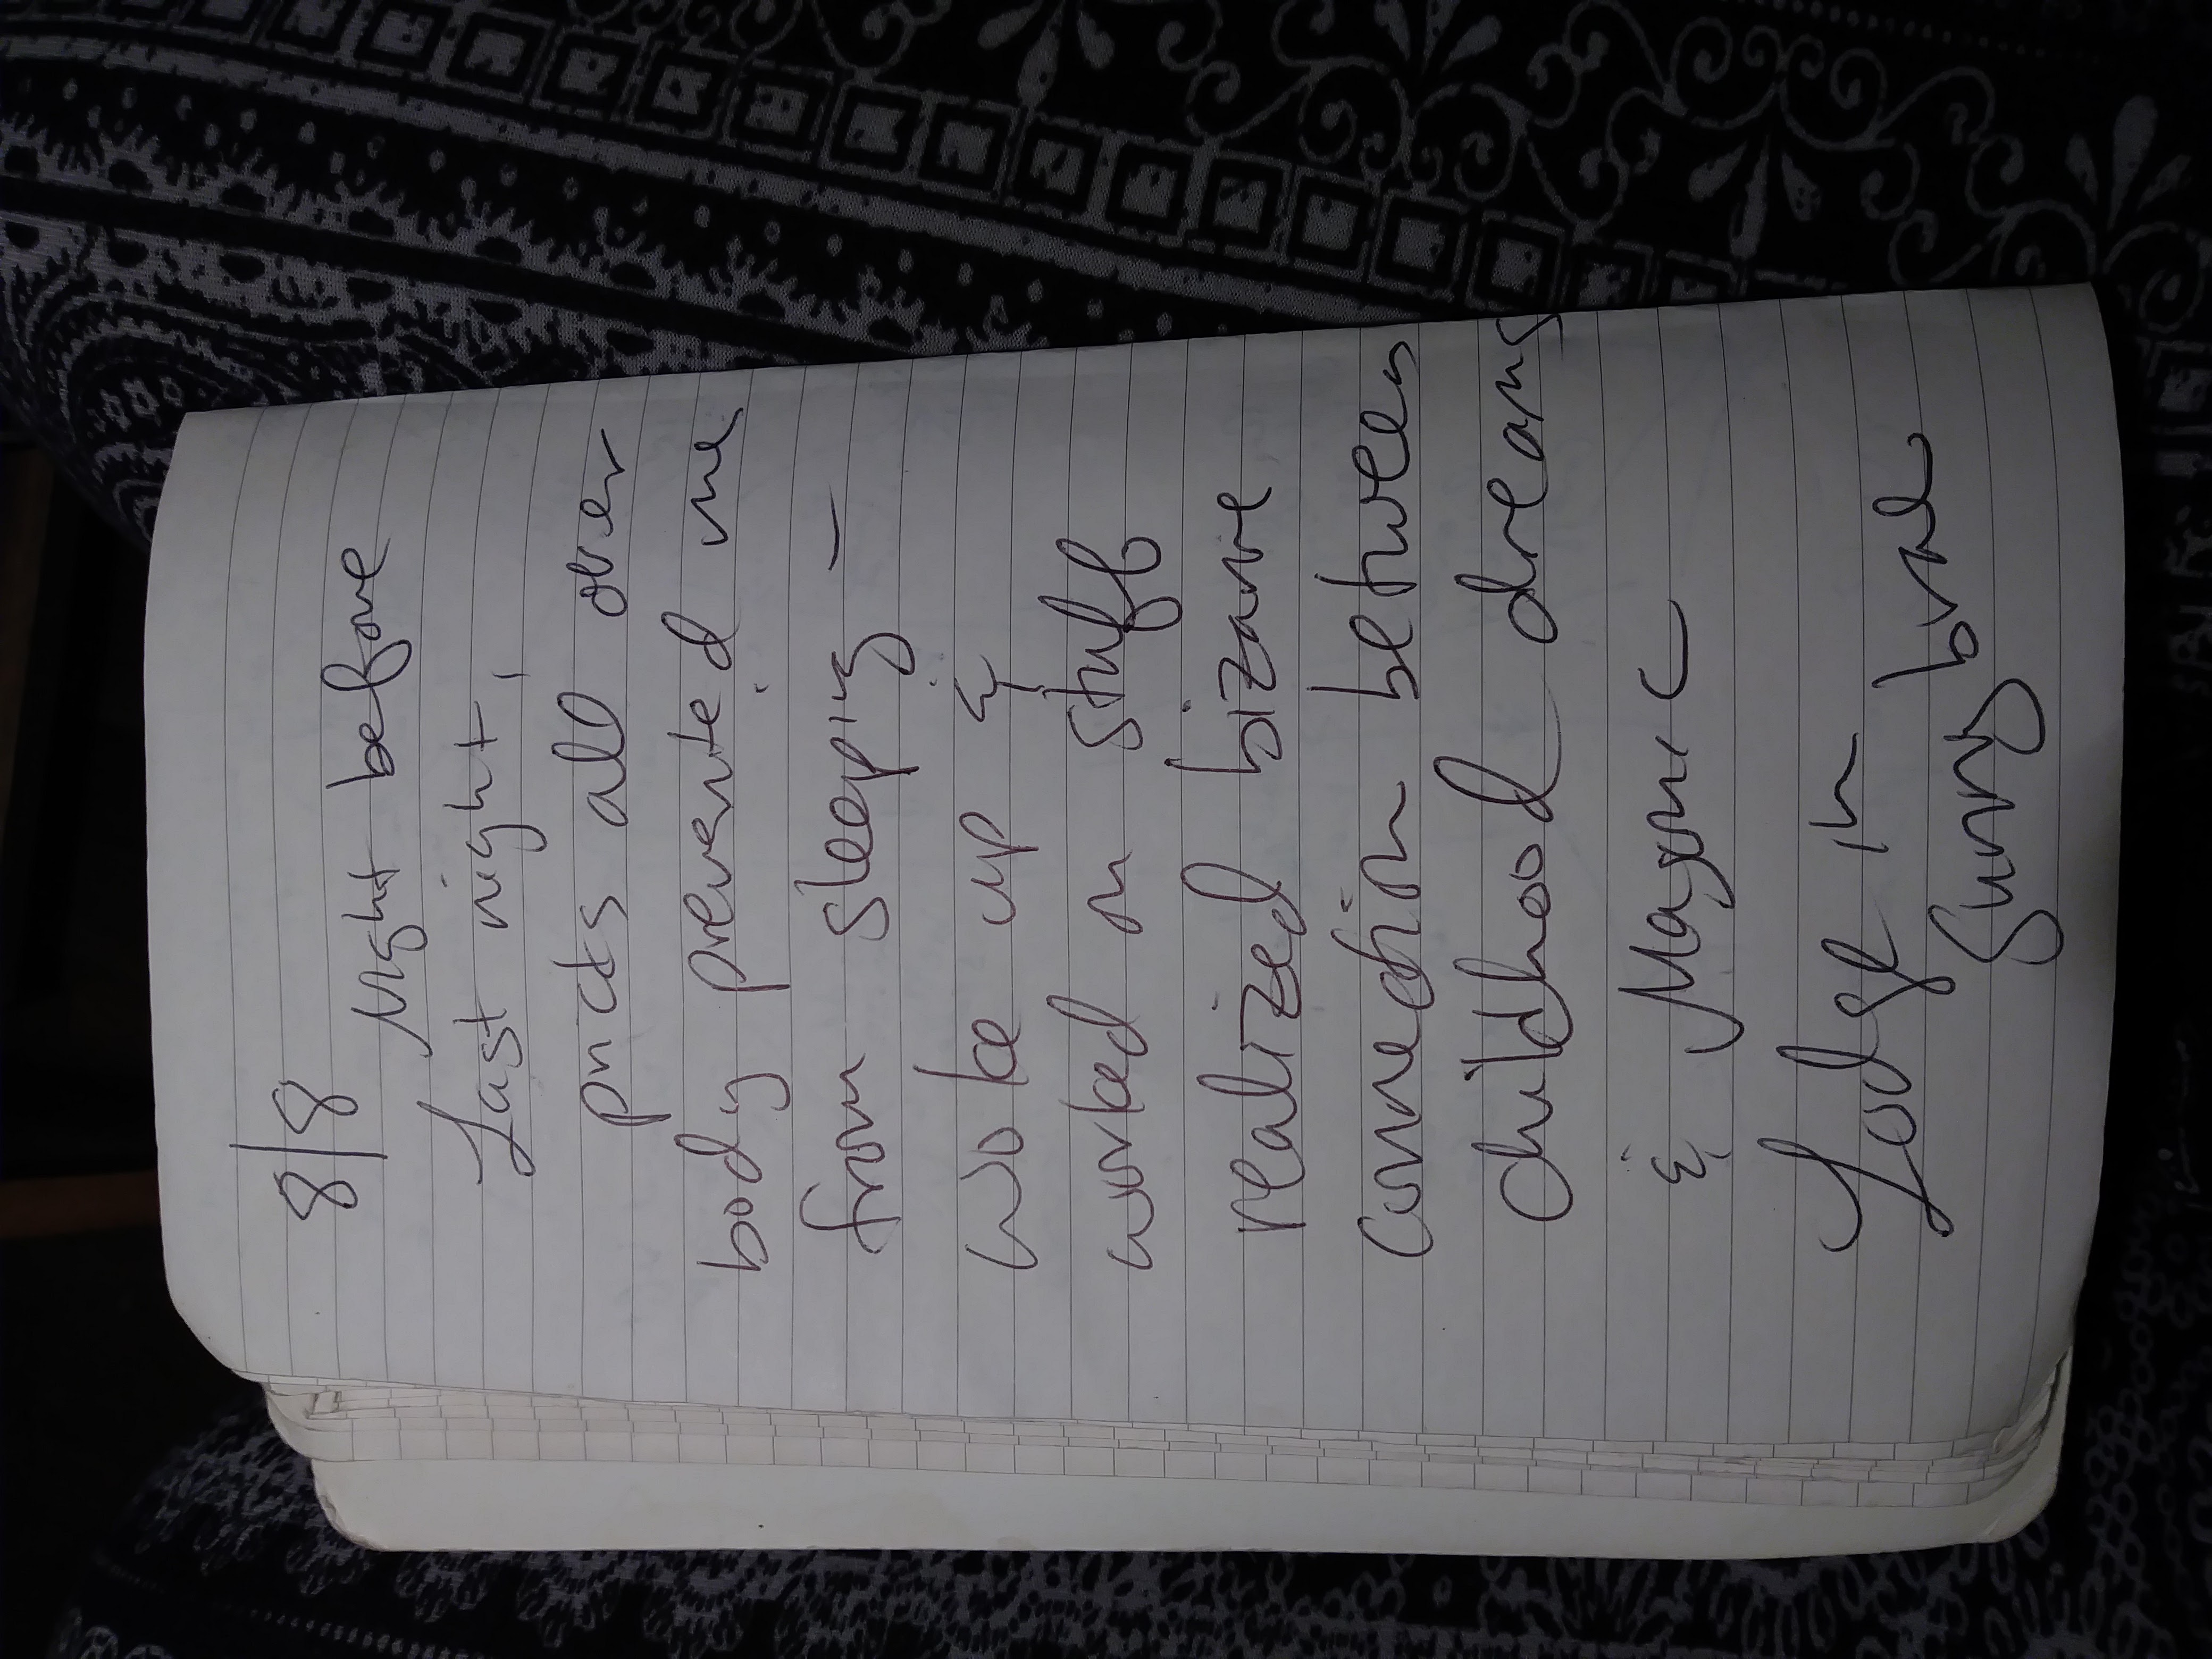 8/8
Night before
Last night,
pricks all over
body prevented me
from sleeping —
woke up &
worked on stuff
realized bizarre
connection between
childhood dreams
&
Lodge in